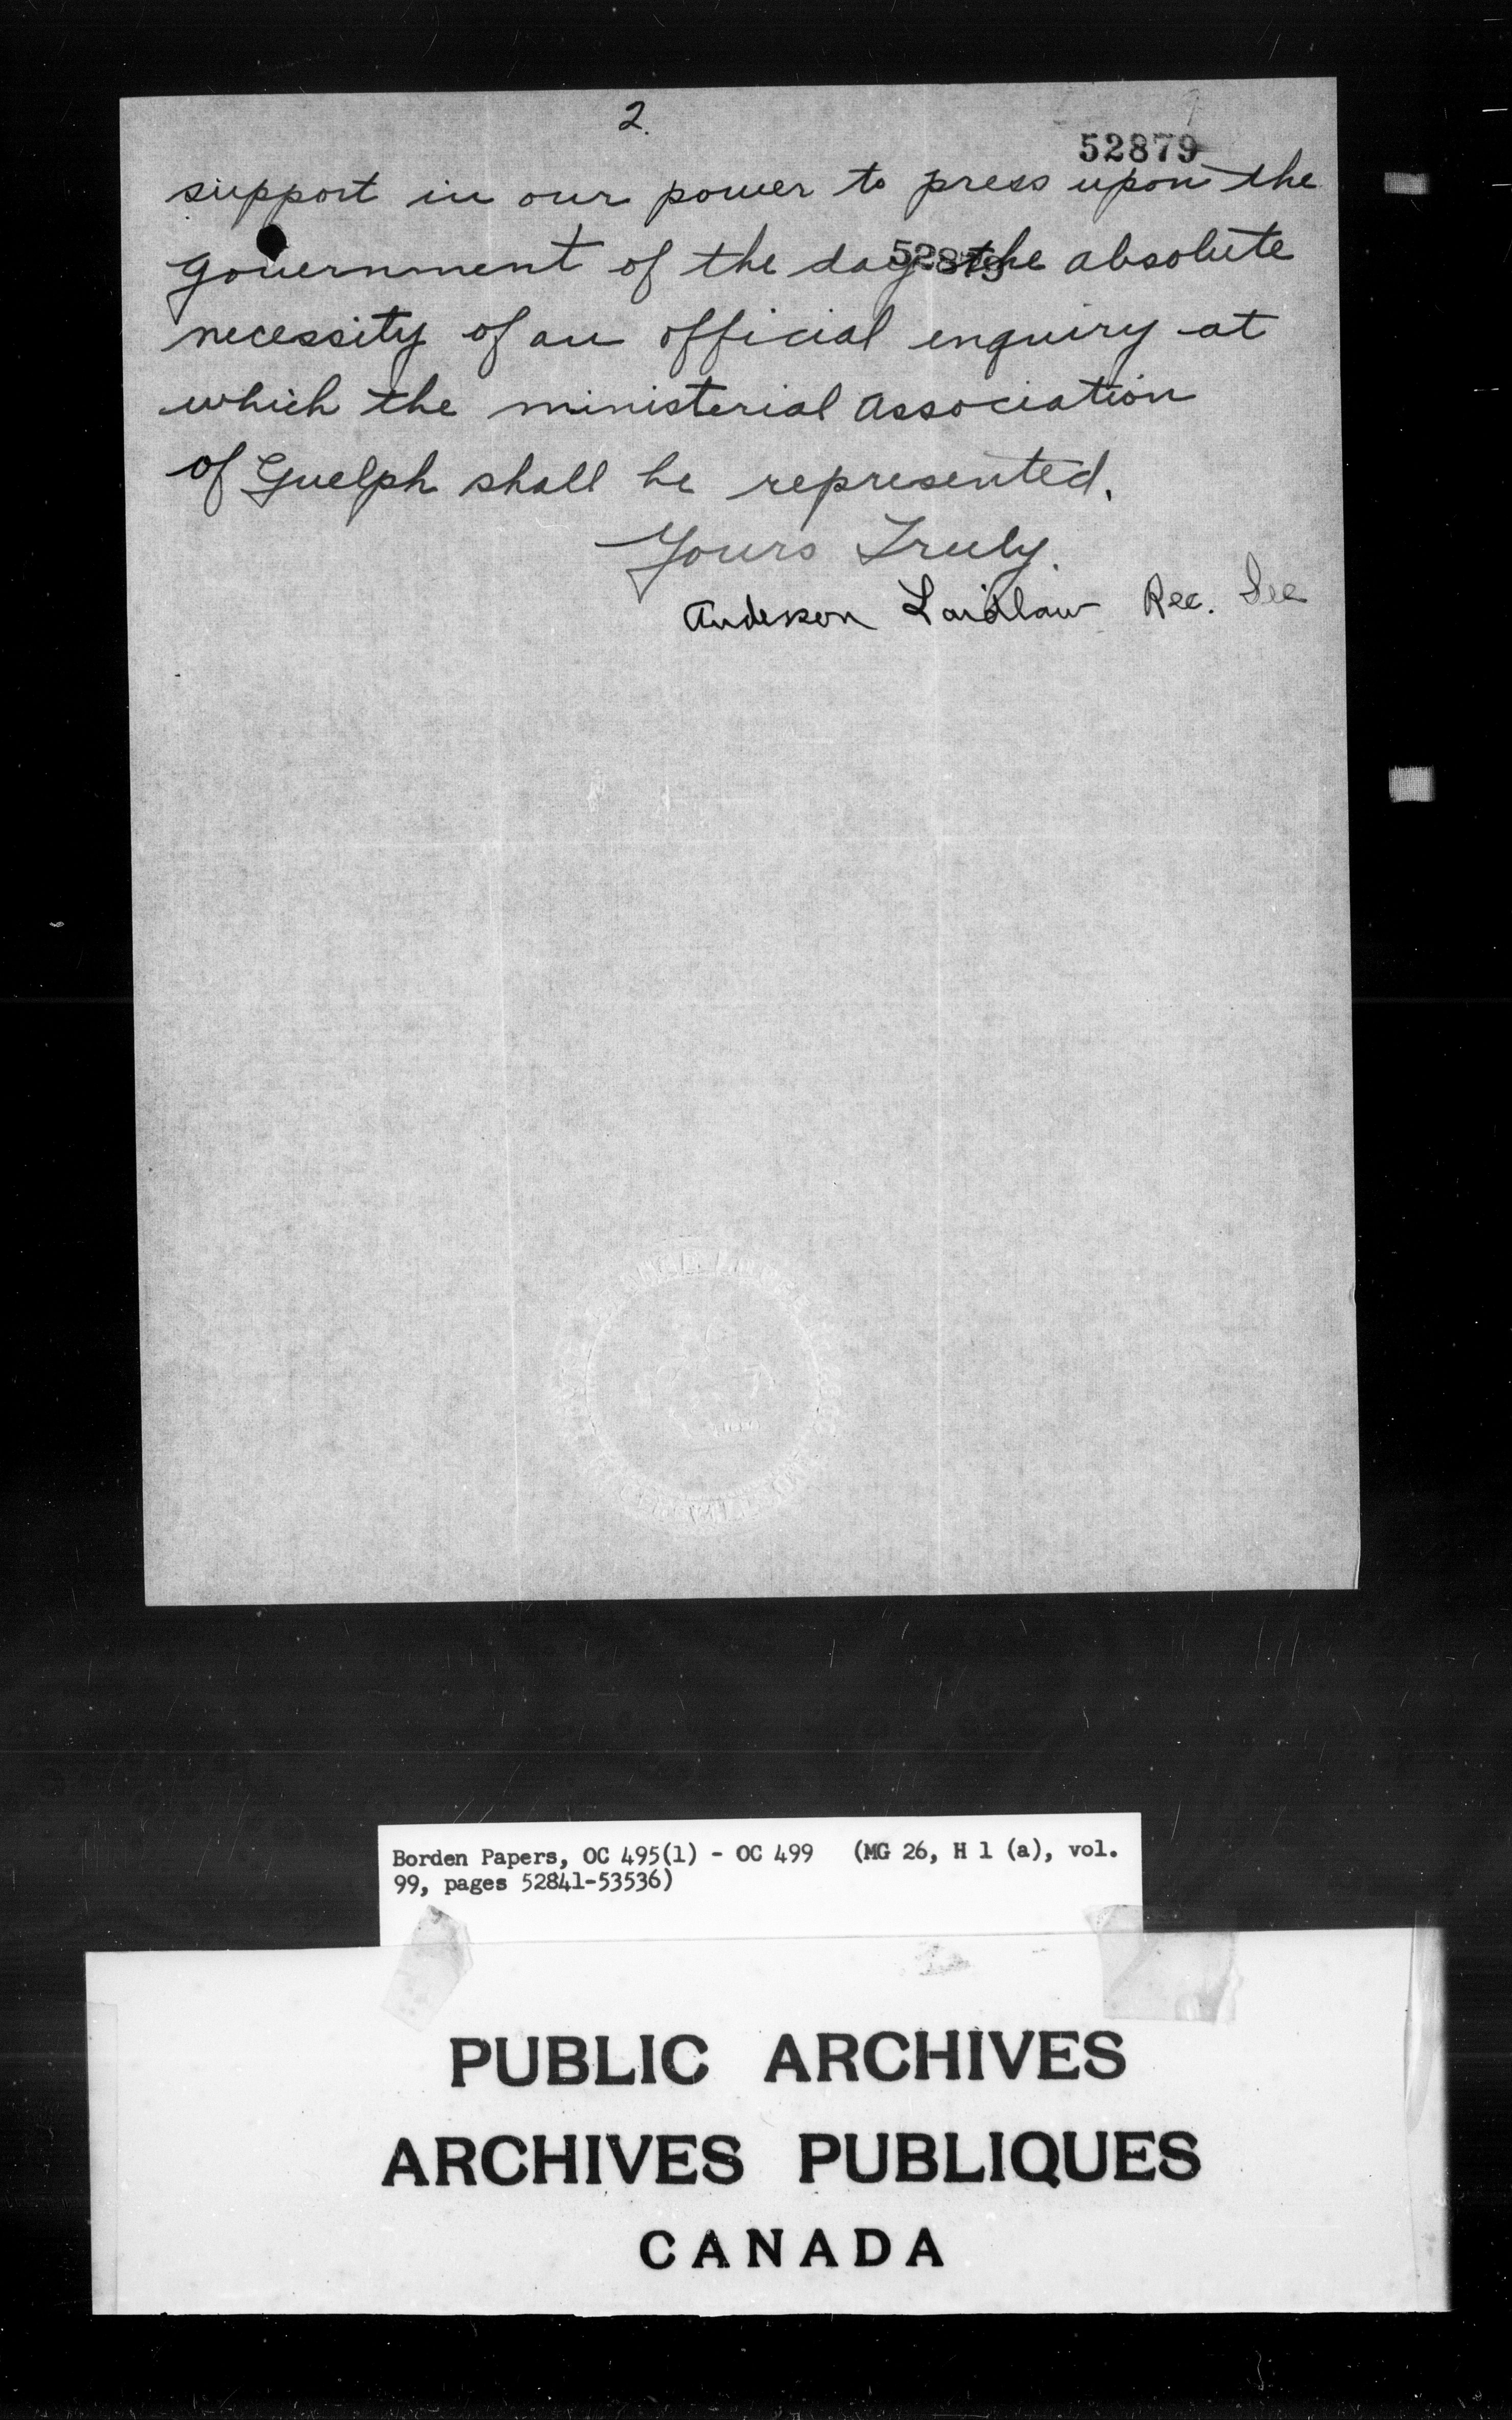 2.
52879
support in our power to press upon the
government of the day the absolute
52879
necessity of an official enquiry at
which the ministerial association
of Guelph shall be represented.
Yours Truly.
Anderson Laidlaw Rec. Sec
Borden Papers, OC 495(1) - OC 499 (MG 26, H 1 (a), vol.
99, pages 52841-53536)
PUBLIC ARCHIVES
ARCHIVES PUBLIQUES
CANADA